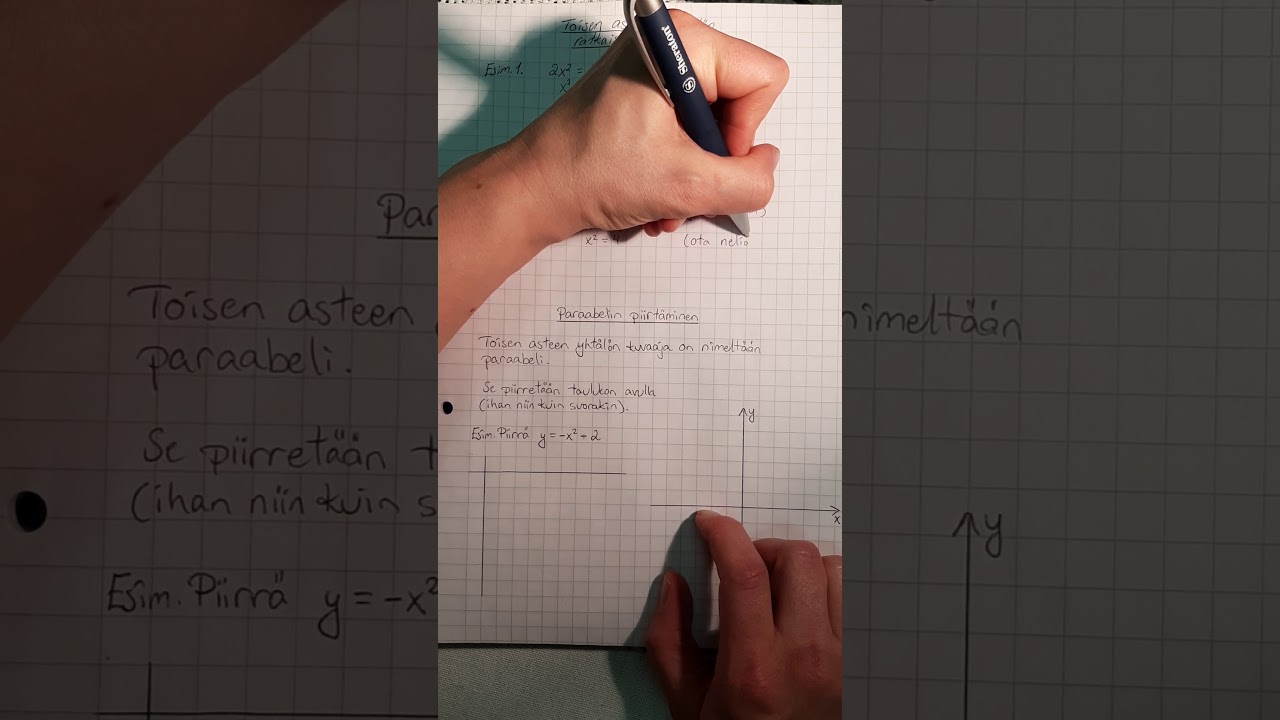 Toisen
ratkai
Esim. 1. 2x² =
x²
Sheraton
S
x² = (ota neliö
Paraabelin piirtäminen
Toisen asteen yhtälön kuvaaja on nimeltään
paraabeli.
Se piirretään taulukon avulla
(ihan niin kuin suorakin).
Esim. Piirrä y = -x² + 2
y
x
Par
Toisen asteen
paraabeli.
Se piirretään t
(ihan niin kuin s
Esim. Piirrä y = -x²
nimeltään
y